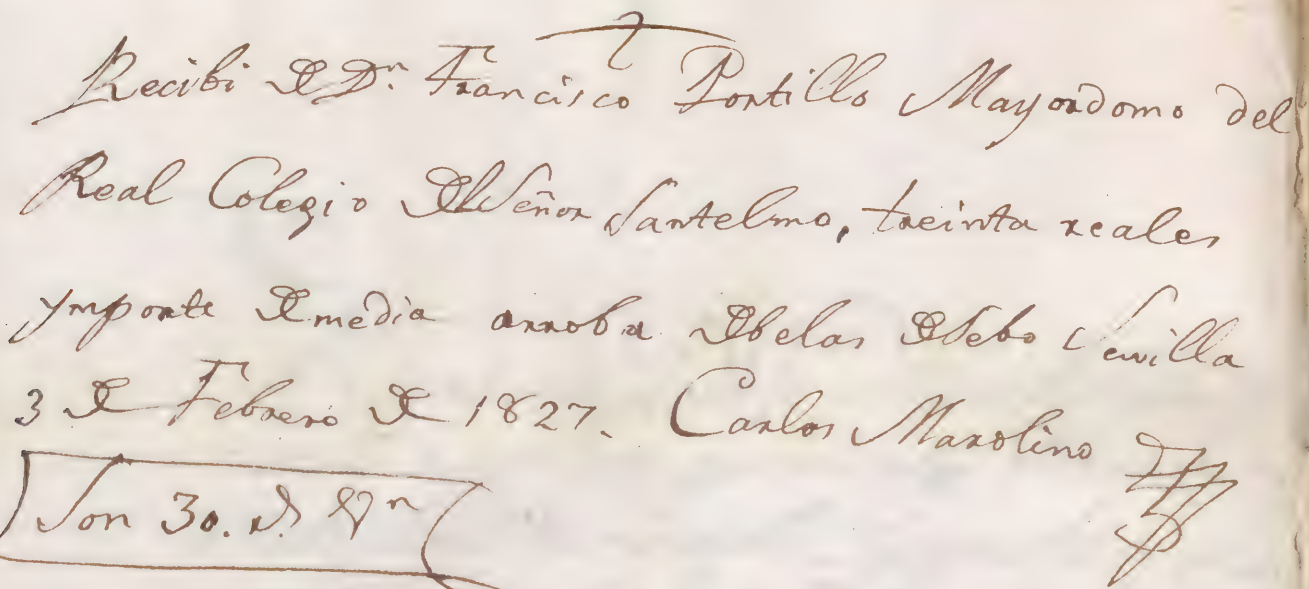 Recibi de Dn. Francisco Portillo Mayordomo del
Real Colegio del Señor Santelmo, treinta reales
ymporte de media arroba de belas de sebo Sevilla
3 de Febrero de 1827. Carlos Marolino
Son 30. rs. vn